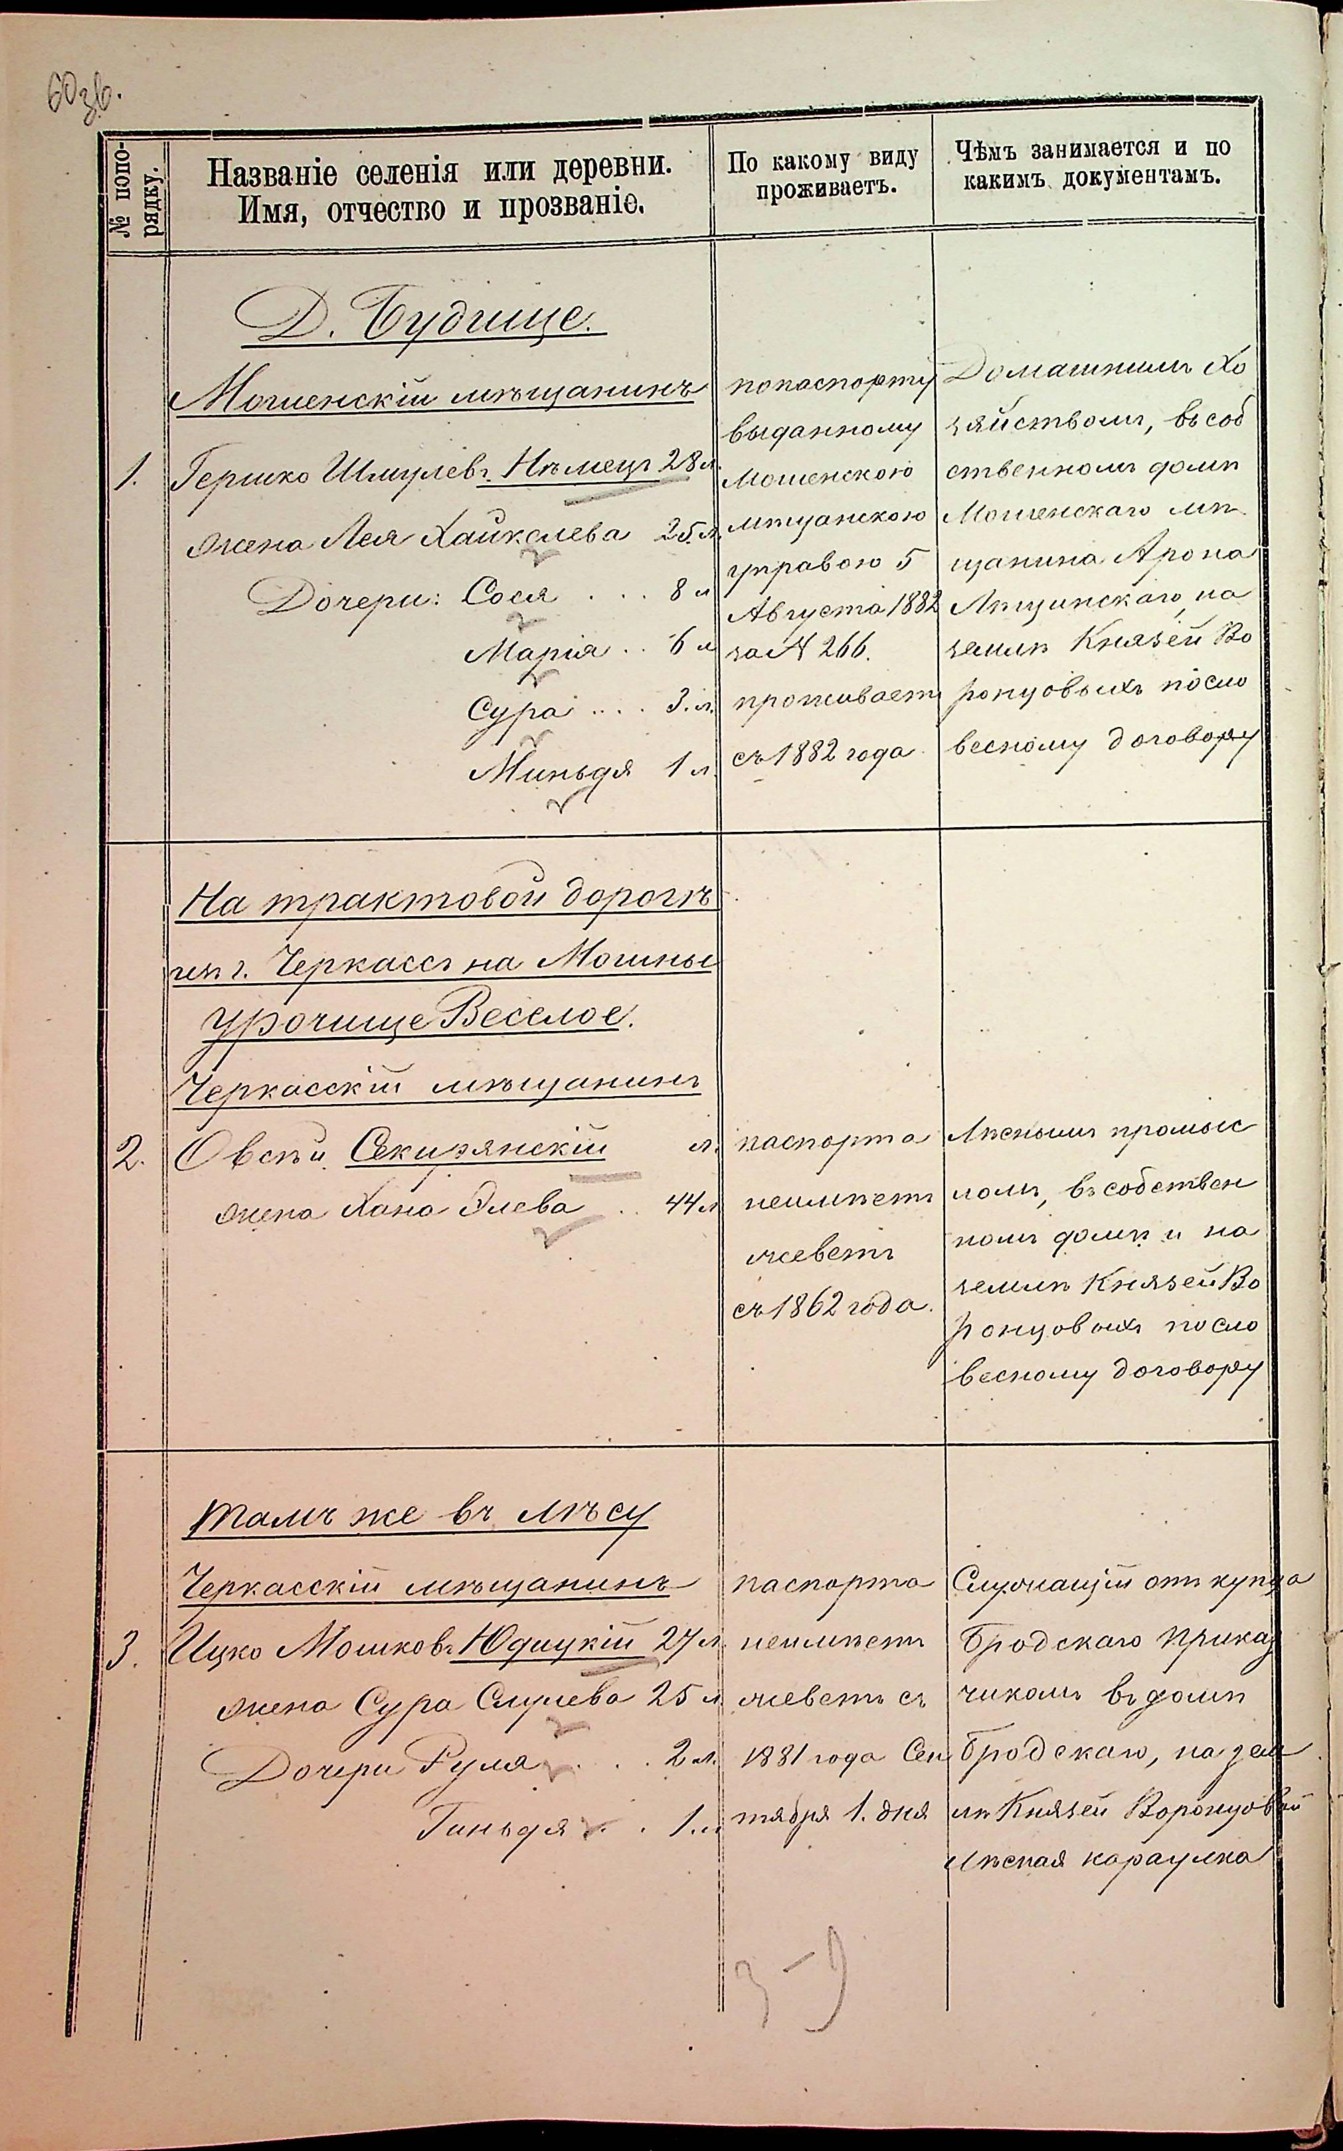 60 зв.
№ попо-
рядку.
Названіе селенія или деревни.
Имя, отчество и прозваніе.
По какому виду
проживаетъ.
Чѣмъ занимается и по
какимъ документамъ.
Д. Будище.
Мошенскій мѣщанинъ
1. Гершко Шмулевъ Нѣмецъ 28 л.
жена Лея Хайкелева 25 л.
Дочери: Сося . . . 8 л
Марія . . 6 л
Сура . . . 3 л.
Миньдя 1 л.
попаспорту
выданному
Мошенскою
мѣщанскою
управою 5
Августа 1882
за № 266.
проживаетъ
съ 1882 года
Домашнимъ хо
зяйствомъ, въ соб
ственномъ домѣ
Мошенскаго мѣ
щанина Арона
на
землѣ Князей Во
ронцовыхъ посло
весному договору
На трактовой дорогѣ
изъ г. Черкассъ на Мошны
урочище Веселое.
Черкасскій мѣщанинъ
2. Овсѣй Секирянскій л.
жена Хана Элева . . 44 л
паспорта
неимѣетъ
живетъ
съ 1862 года.
Лѣснымъ промыс
ломъ, въ собствен
номъ домѣ и на
землѣ Князей Во
ронцовыхъ посло
весному договору
Тамъ же въ лѣсу
Черкасскій мѣщанинъ
3. Ицко Мошковъ Юдицкій 27 л.
жена Сура Срулева 25 л
Дочери Руля . . . 2 л.
Гиньдя . . 1 л
паспорта
неимѣетъ
живетъ съ
1881 года Сен
тября 1. дня
Служащій отъ купца
Бродскаго приказ
чикомъ въ домѣ
Бродскаго, на зем
лѣ Князей Воронцовой
Лѣсная караулка
3 – 9